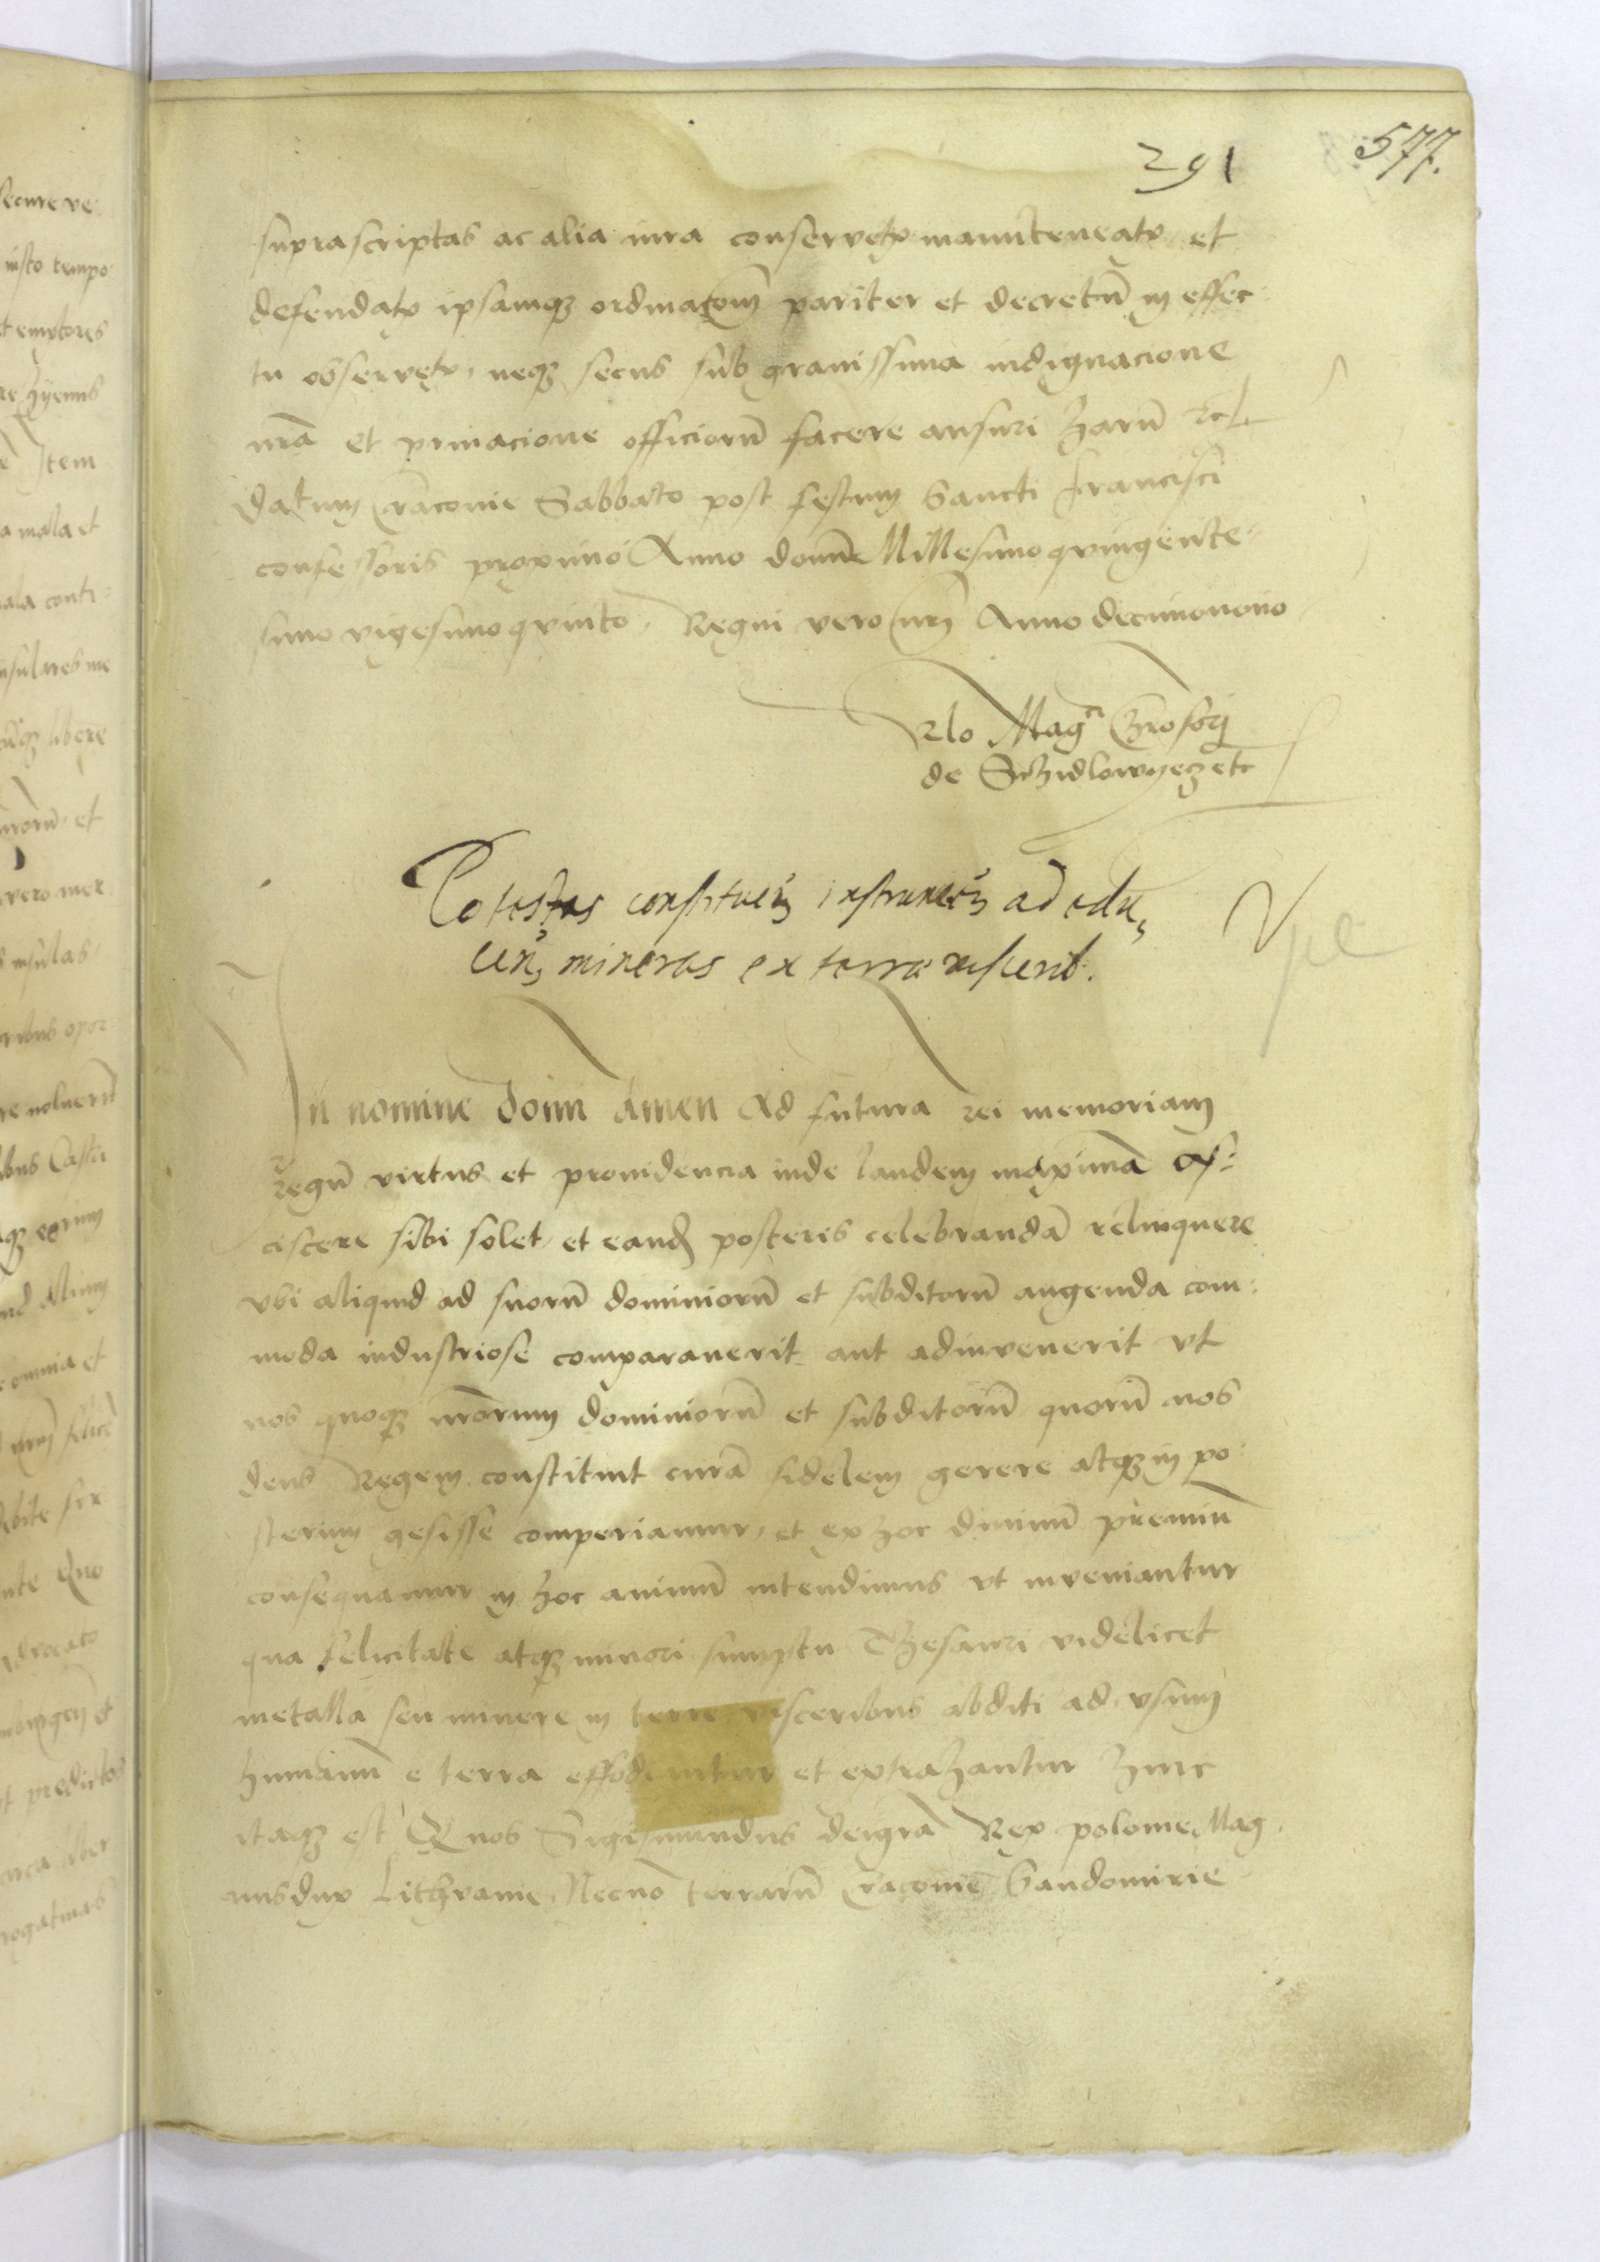 291
577.
suprascriptas ac alia iura conservetis manuteneatis et
defendatis ipsamque ordinacionem pariter et decretum in effec
tu observetis, neque secus sub gravissima indignacione
nostra et privacione officiorum facere ausuri harum
Datum Cracovie Sabbato post festum Sancti Francisci
confessoris proximo Anno domini Millesimoquingente-
simo vigesimoquinto, Regni vero nostri Anno decimonono
Rlo Magci Christofori
de Schidlowyecz etc
Potestas instrumentum ad edu
mineras ex terra viscerib.
In nomine domini Amen Ad futuram rei memoriam
Regum virtus et providencia inde laudem maximam as-
ciscere sibi solet et eandem posteris celebrandam relinquere
vbi aliquid ad suorum dominiorum et subditorum augenda com-
moda industriose comparaverit aut adinvenerit vt
nos quoque nostrorum dominiorum et subditorum quorum nos
deus Regem constituit curam fidelem gerere atque in po
sterum gesisse comperiamur, et ex hoc divinum premium
consequamur in hoc animum intendimus vt inveniantur
qua felicitate atque minori sumptu Thesauri videlicet
metalla seu minere in terre visceribus abditi ad vsum
humanum e terra effodiuntur et extrahantur hinc
itaque est Quod nos Sigismundus dei gracia Rex polonie Mag
nusdux Lithvanie, Necnon terrarum Cracovie Sandomirie